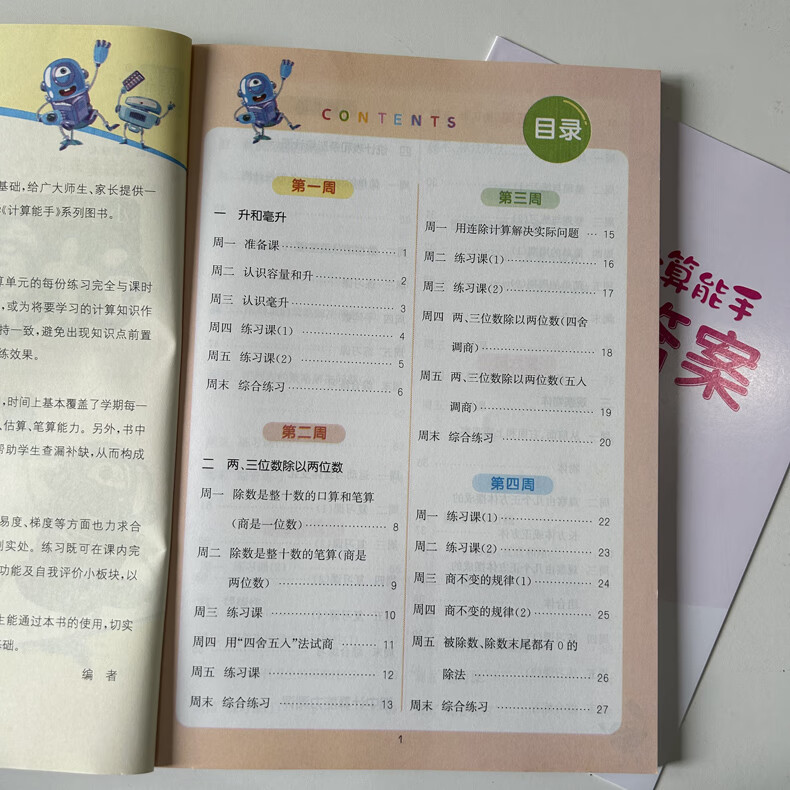 基础,给广大师生、家长提供一
《计算能手》系列图书。
算单元的每份练习完全与课时
,或为将要学习的计算知识作
持一致,避免出现知识点前置
练效果。
,时间上基本覆盖了学期每一
、估算、笔算能力。另外,书中
帮助学生查漏补缺,从而构成
易度、梯度等方面也力求合
到实处。练习既可在课内完
功能及自我评价小板块,以
生能通过本书的使用,切实
基础。
编 者
CONTENTS
目录
第一周
一 升和毫升
周一 准备课 1
周二 认识容量和升 2
周三 认识毫升 3
周四 练习课(1) 4
周五 练习课(2) 5
周末 综合练习 6
第二周
二 两、三位数除以两位数
周一 除数是整十数的口算和笔算
(商是一位数) 8
周二 除数是整十数的笔算(商是
两位数) 9
周三 练习课 10
周四 用“四舍五入”法试商 11
周五 练习课 12
周末 综合练习 13
第三周
周一 用连除计算解决实际问题 15
周二 练习课(1) 16
周三 练习课(2) 17
周四 两、三位数除以两位数(四舍
调商) 18
周五 两、三位数除以两位数(五入
调商) 19
周末 综合练习 20
第四周
周一 练习课(1) 22
周二 练习课(2) 23
周三 商不变的规律(1) 24
周四 商不变的规律(2) 25
周五 被除数、除数末尾都有0的
除法 26
周末 综合练习 27
1
算能手
答案